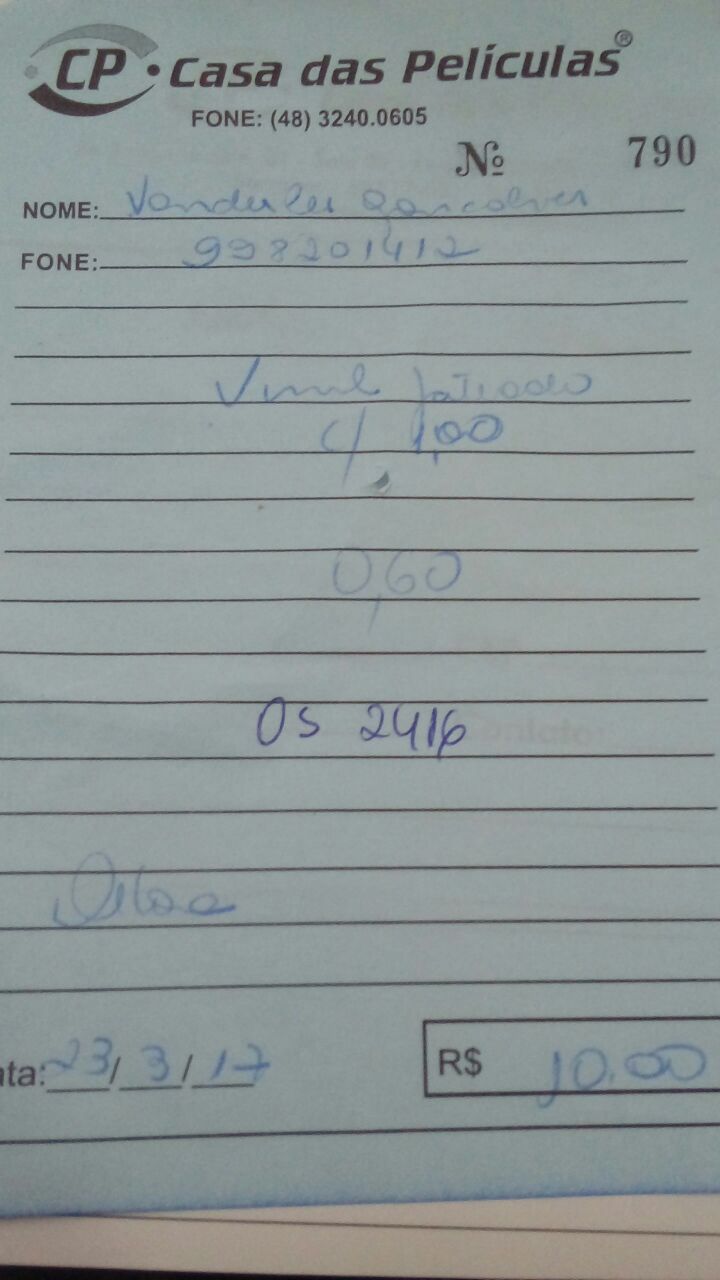 CP • Casa das Películas®
FONE: (48) 3240.0605
Nº 790
NOME: Vanderlei Goncalves
FONE: 998201412
Vinil Jatiado
c/ 1,00
0,60
OS 2416
ata: 23/3/17
R$ 10.00